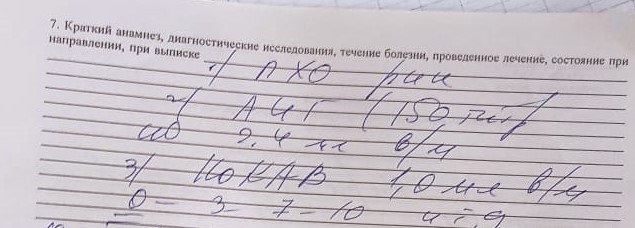 7. Краткий анамнез, диагностические исследования, течение болезни, проведенное лечение, состояние при
направлении, при выписке 1/ АХО ран
2/ АИГ (150
9,4 мл в/м
3/ КОКАВ 1,0 мл в/м
0 - 3 - 7 - 10 и т.д